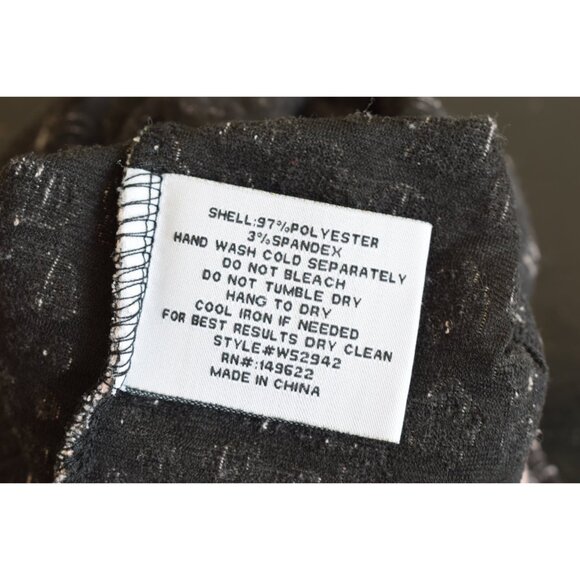 SHELL:97%POLYESTER
3%SPANDEX
HAND WASH COLD SEPARATELY
DO NOT BLEACH
DO NOT TUMBLE DRY
HANG TO DRY
COOL IRON IF NEEDED
FOR BEST RESULTS DRY CLEAN
STYLE#W52942
RN#:149622
MADE IN CHINA